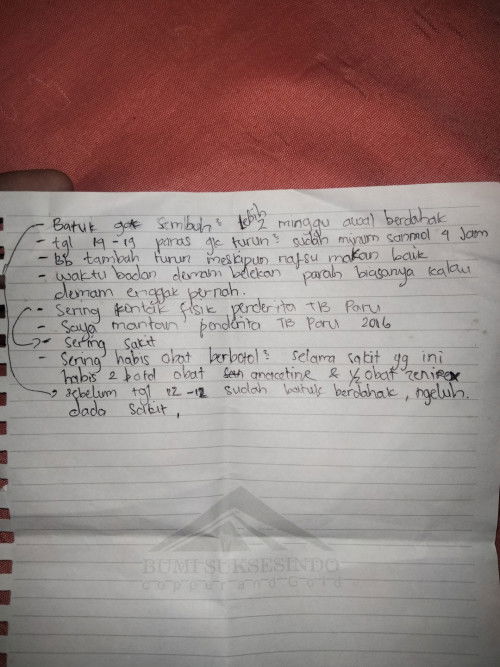 - Batuk gak sembuh² lebih 2 minggu awal berdahak
- tgl 19-19 panas gk turun² sudah minum sanmol 4 Jam
- BB tambah turun meskipun nafsu makan baik
- waktu badan demam belekan parah biasanya kalau
demam enggak pernah.
- Sering kontak fisik penderita TB Paru
- Saya mantan penderita TB Paru 2016
- Sering sakit
- Sering habis obat berbotol² selama sakit yg ini
habis 2 botol obat anacetine & ½ obat
sebelum tgl 12-12 sudah batuk berdahak, ngeluh
dada sakit,
BUMI SUKSESINDO
Copper and Gold